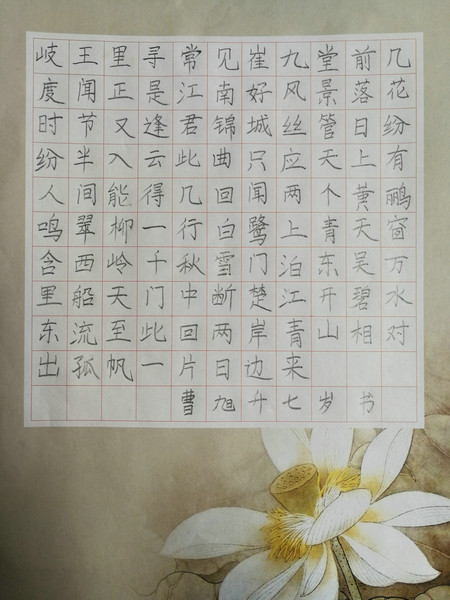 岐王里寻常见崔九堂前几
度闻正是江南好风景落花
时节又逢君锦城丝管日纷
纷半入云此曲只应天上有
人间能得几回闻两个黄鹂
鸣翠柳一行白鹭上青天窗
含西岭千秋雪门泊东吴万
里船天门中断楚江开碧水
东流至此回两岸青山相对
出孤帆一片日边来
曹旭升七岁书